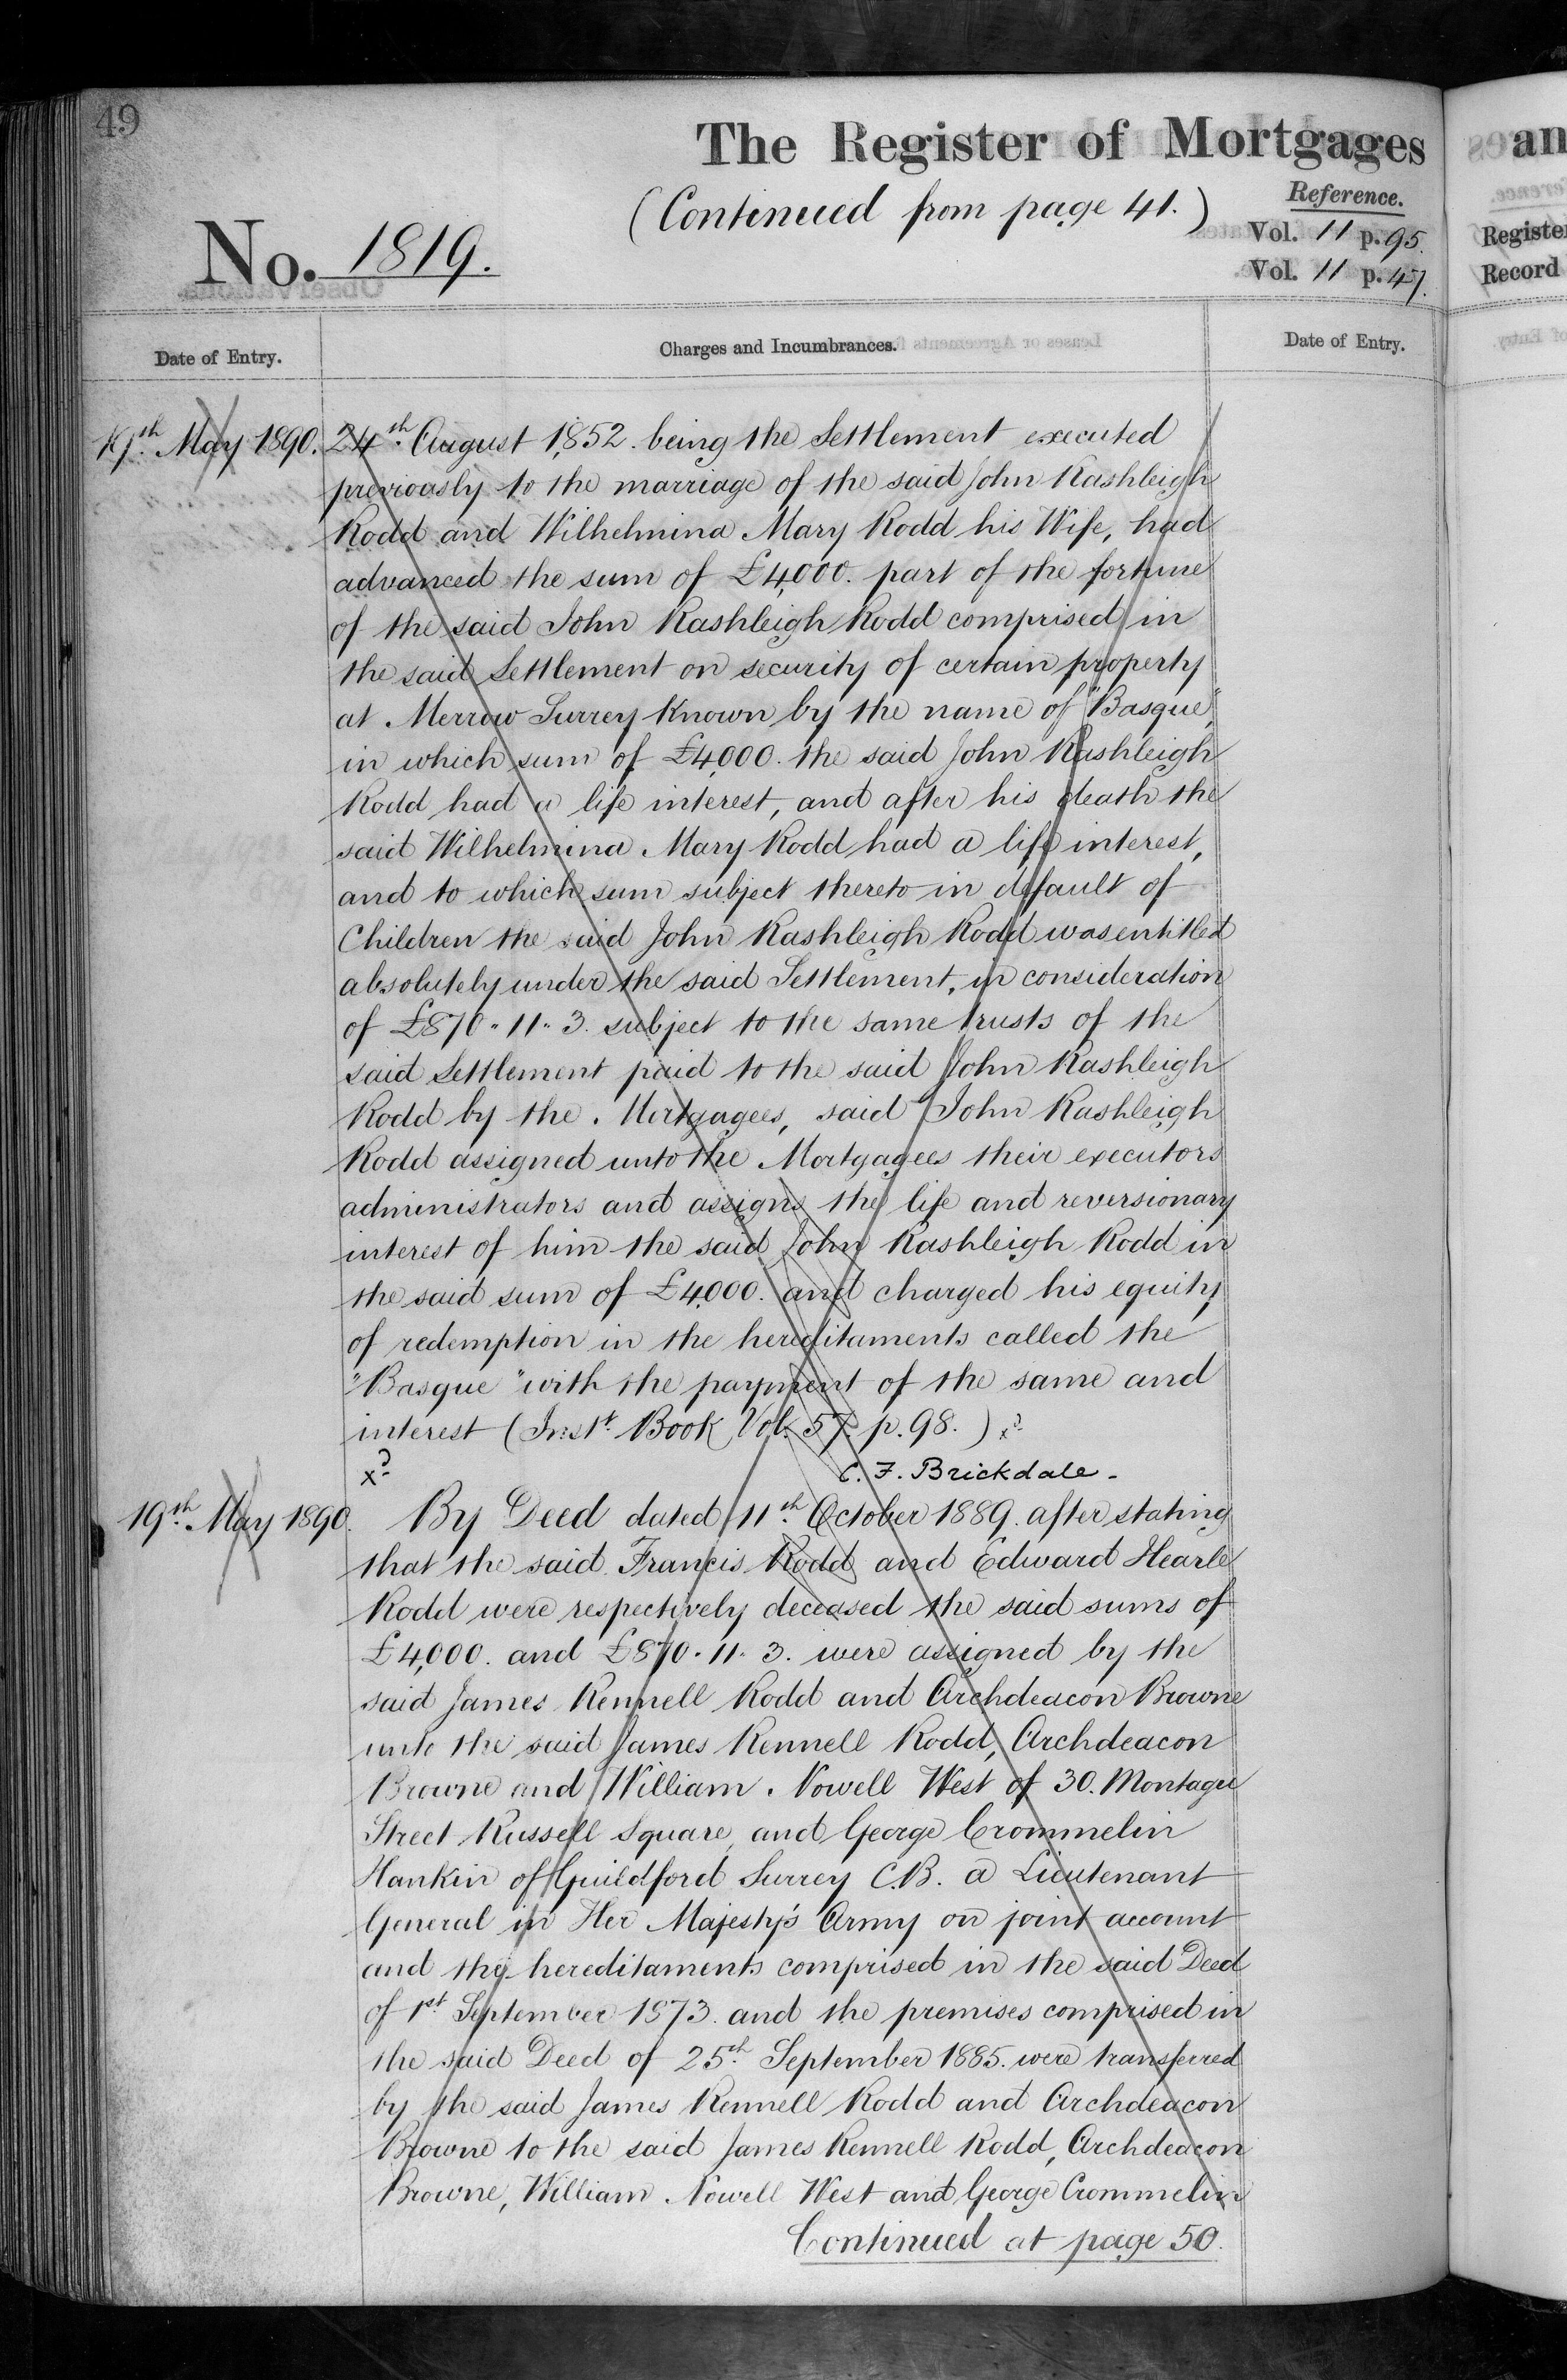 49
The Register of Mortgages
(Continued from page 41.)
Reference.
No. 1819.
Vol. 11 p. 95.
Vol. 11 p. 47.
Date of Entry.
Charges and Incumbrances.
Date of Entry.
19th May 1890. 24th August 1852. being the Settlement executed
previously to the marriage of the said John Rashleigh
Rodd and Wilhelmina Mary Rodd his Wife, had
advanced the sum of £4,000. part of the fortune
of the said John Rashleigh Rodd comprised in
the said Settlement on security of certain property
at Merrow Surrey known by the name of "Basque",
in which sum of £4,000. the said John Rashleigh
Rodd had a life interest, and after his death the
said Wilhelmina Mary Rodd had a life interest,
and to which sum subject thereto in default of
Children the said John Rashleigh Rodd was entitled
absolutely under the said Settlement, in consideration
of £870 " 11 " 3. subject to the same trusts of the
said Settlement paid to the said John Rashleigh
Rodd by the Mortgagees, said John Rashleigh
Rodd assigned unto the Mortgagees their executors
administrators and assigns the life and reversionary
interest of him the said John Rashleigh Rodd in
the said sum of £4,000. and charged his equity
of redemption in the hereditaments called the
"Basque" with the payment of the same and
interest (Inst. Book Vol. 57. p. 98.) xd
xd
C. F. Brickdale.
19th May 1890. By Deed dated 11th October 1889. after stating
that the said Francis Rodd and Edward Hearle
Rodd were respectively deceased the said sums of
£4,000. and £870 " 11 " 3. were assigned by the
said James Rennell Rodd and Archdeacon Browne
unto the said James Rennell Rodd, Archdeacon
Browne and William Nowell West of 30. Montague
Street Russell Square, and George Crommelin
Hankin of Guildford Surrey C.B. a Lieutenant
General in Her Majesty's Army on joint account
and the hereditaments comprised in the said Deed
of 1st September 1873. and the premises comprised in
the said Deed of 25th September 1885. were transferred
by the said James Rennell Rodd and Archdeacon
Browne to the said James Rennell Rodd, Archdeacon
Browne, William Nowell West and George Crommelin
Continued at page 50.
an
Register
Record